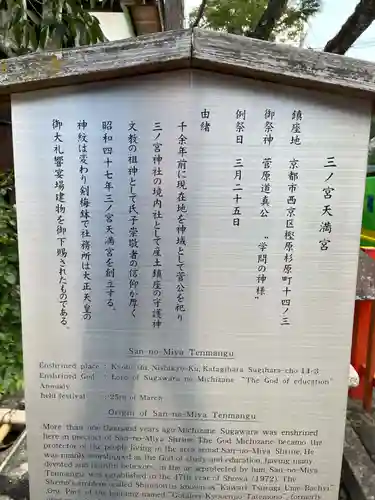 三ノ宮天満宮
鎮座地　京都市西京区樫原杉原町十四ノ三
御祭神　菅原道真公　"学問の神様"
例祭日　三月二十五日
由緒
千余年前に現在地を神域として菅公を祀り
三ノ宮神社の境内社として産土鎮座の守護神
文教の祖神として氏子崇敬者の信仰が厚く
昭和四十七年三ノ宮天満宮を創立する。
神紋は変わり剣梅鉢で社務所は大正天皇の
御大礼饗宴場建物を御下賜されたものである。
San-no-Miya Tenmangu
Enshrined place : Kyoto-shi, Nishikyo-Ku, Katagihara Sugihara-cho 14-3
Enshrined God : Lord of Sugawara no Michizane "The God of education"
Annualy
held festival : 25th of March
Origin of San-no-Miya Tenmangu
More than one thousand years ago Michizane Sugawara was enshrined
here in precinct of San-no-Miya Shrine. The God Michizane became the
protector of the people living in the area around San-no-Miya Shrine. He
was mainly worshipped as the God of study and education, having many
devoted and faithful believers, in the
Tenmangu was established in the 47th year of Showa (1972). The